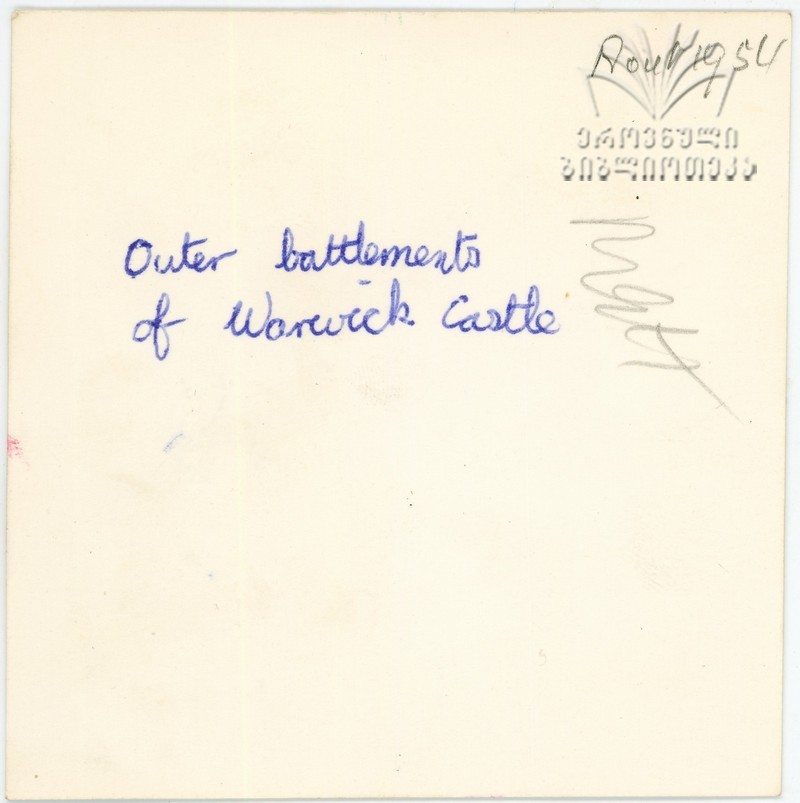 Août 1954
ეროვნული
ბიბლიოთეკა
Outer battlements
of Warwick Castle